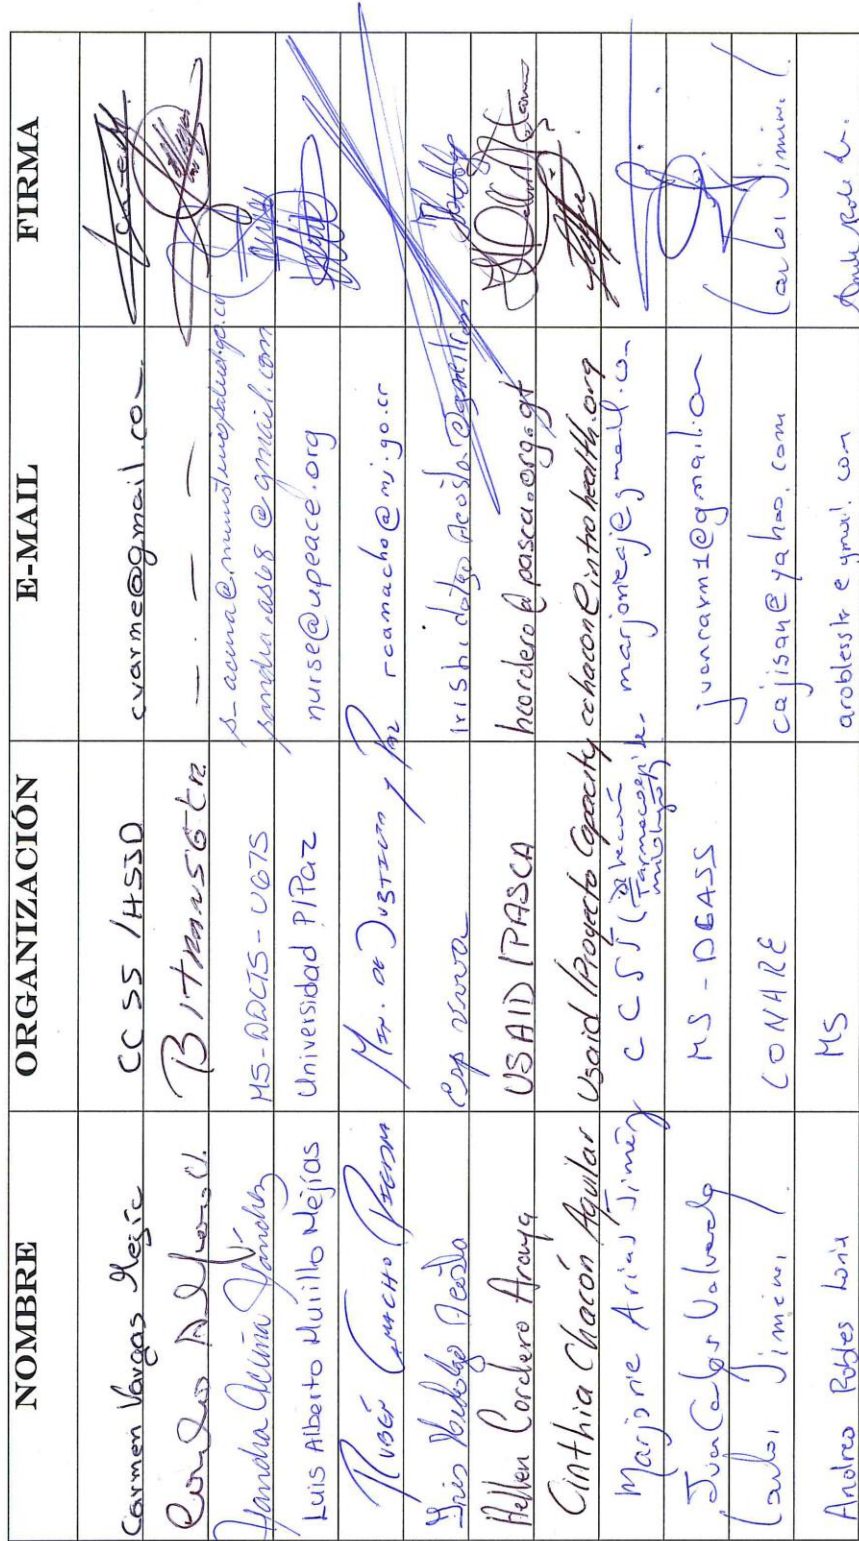 NOMBRE ORGANIZACIÓN E-MAIL FIRMA
Carmen Vargas Mejía CCSS/HSJD cvarme@gmail.co
Bitransgetr
Sandra Acuña Sánchez MS-DDCTS-UGTS s_acuna@ministeriosalud.go.cr
sandra.as68@gmail.com
Luis Alberto Murillo Mejías Universidad P/Paz nurse@upeace.org
Rubén Camacho Min. de Justicia y Paz rcamacho@mj.go.cr
Iris Hidalgo Acosta Esp Viva irishidalgo acosta@gmail.com
Hellen Cordero Araya USAID/PASCA hcordero@pasca.org.gt
Cinthia Chacón Aguilar Usaid/Proyecto Capacity cchacon@intrahealth.org
Marjorie Arias Jiménez CCSS (Dirección Farmacoepidemiología) marjorieaj@gmail.co
Juan Carlos Valverde MS-DGASS
Carlos Jiménez CONARE cajisan@yahoo.com Carlos Jiménez
Andrea Robles Loría MS aroblesslr@gmail.com